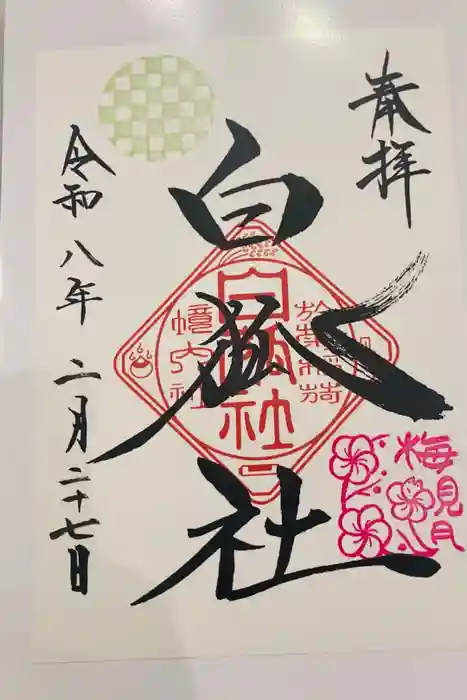 奉拝
白狐社
於菊稲荷
白狐社
境内社
梅見月
令和八年二月二十七日